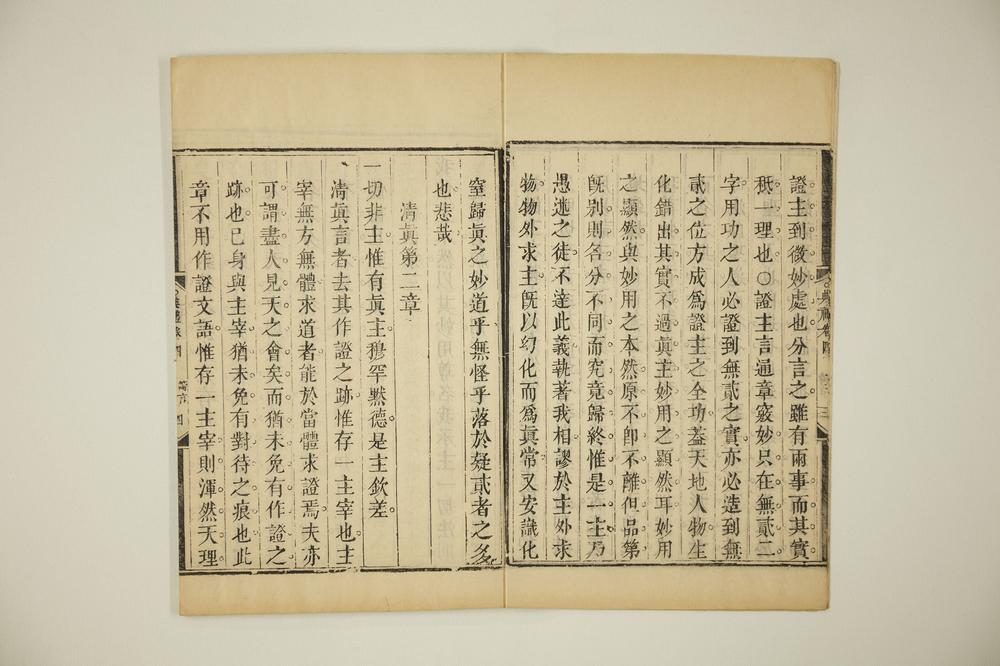 證主到微妙處也分言之雖有兩事而其實
秪一理也○證主言通章竅妙只在無貳二
字用功之人必證到無貳之實亦必造到無
貳之位方成爲證主之全功葢天地人物生
化錯出其實不過眞主妙用之顯然耳妙用
之顯然與妙用之本然原不卽不離但品第
旣别則各分不同而究竟歸終惟是一主乃
愚迷之徒不達此義執著我相謬於主外求
物物外求主旣以幻化而爲眞常又安識化
窒歸眞之妙道乎無怪乎落於疑貳者之多
也悲哉
淸眞第二章
一切非主惟有眞主穆罕黙德是主欽差
淸眞言者去其作證之跡惟存一主宰也主
宰無方無體求道者能於當體求證焉夫亦
可謂盡人見天之會矣而猶未免有作證之
跡也已身與主宰猶未免有對待之痕也此
章不用作證文語惟存一主宰則渾然天理